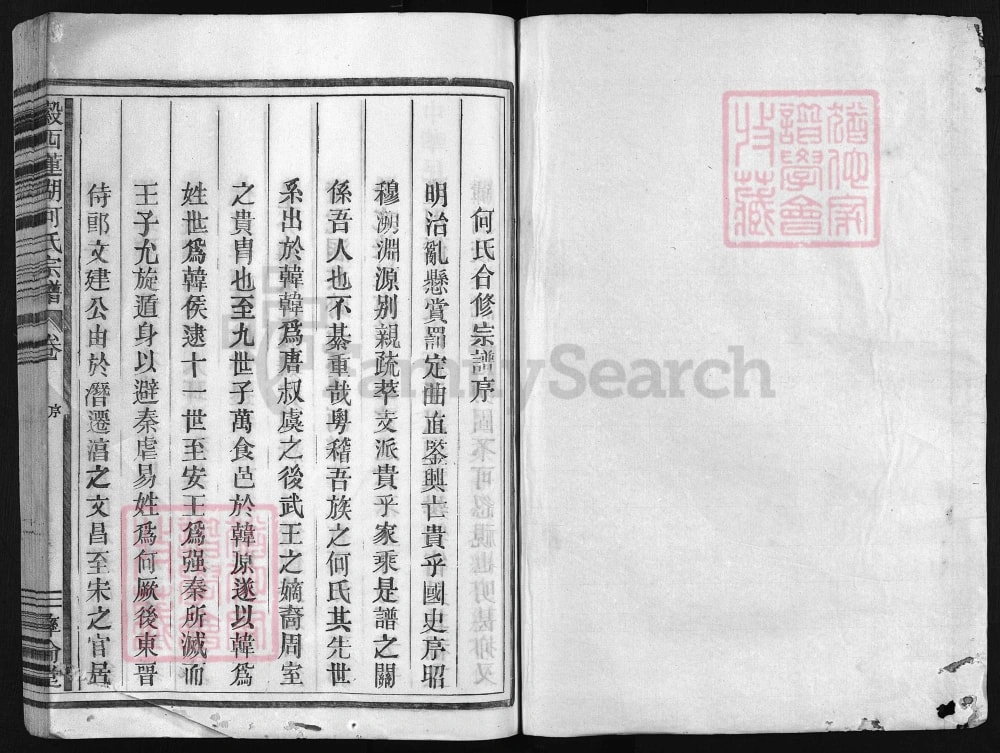 何氏合修宗譜序
明治亂懸賞罰定曲直鑒興亡貴乎國史序昭
穆溯淵源別親疏萃支派貴乎家乘是譜之關
係吾人也不綦重哉粵稽吾族之何氏其先世
系出於韓韓爲唐叔虞之後武王之嫡裔周室
之貴胄也至九世子萬食邑於韓原遂以韓爲
姓世爲韓侯逮十一世至安王爲强秦所滅而
王子允旋遁身以避秦虐易姓爲何厥後東晉
侍郎文建公由於潛遷淯之文昌至宋之官居
穀西蓮湖何氏宗譜 卷 序
FamilySearch